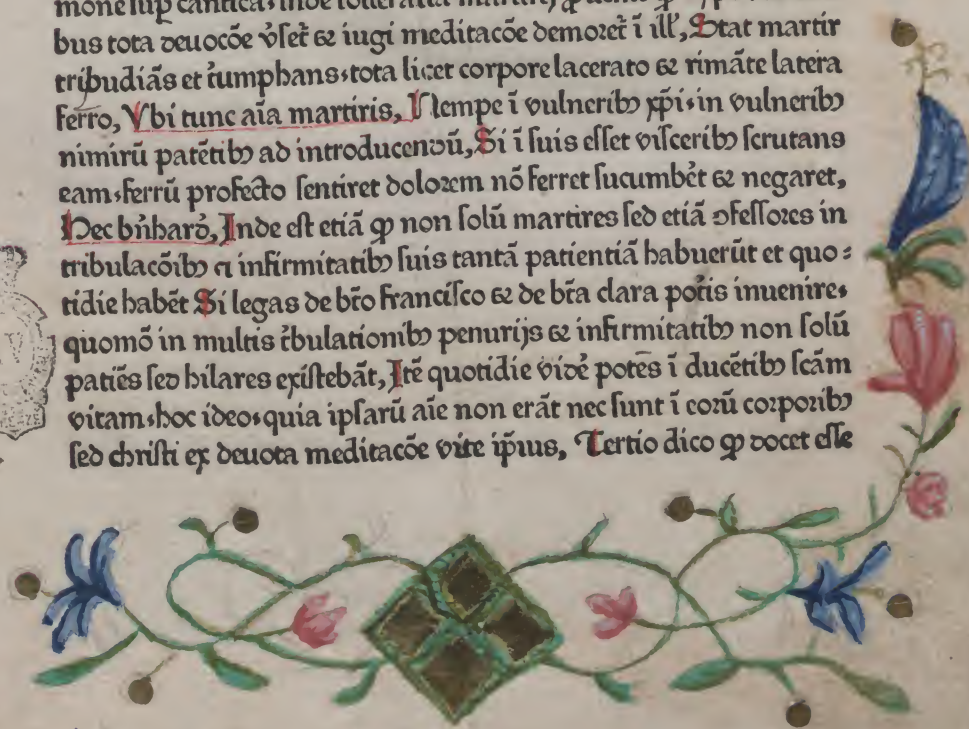 bus tota deuocōe v̉ſet̉ ⁊ iugi meditacōe demoret̉ ī ill', Stat martir
tribudiās et t̉umphans, tota licet corpore lacerato ⁊ rimāte latera
ferro, Vbi tunc aīa martiris, Nempe ī vulneribꝫ xp̄i, in vulneribꝫ
nimirū patētibꝫ ad introducendū, Si ī ſuis eſſet viſceribꝫ ſcrutans
eam, ferrū profecto ſentiret dolorem nō ferret ſucumbet̉ ⁊ negaret,
Hec bn̉hard̉, Inde eſt etiā ꝙ non ſolū martires ſed etiā ↄfeſſores in
tribulacōibꝫ et infirmitatibꝫ ſuis tantā patientiā habuerūt et quo⸗
tidie habēt Si legas de bt̄o franciſco ⁊ de bt̄a clara pot̉is inuenire,
quomō in multis t̉bulationibꝫ penurijs ⁊ infirmitatibꝫ non ſolū
patiēs ſed hilares exiſtebāt, Itē quotidie vidẻ potes̄ ī ducētibꝫ ſcām
vitam, hoc ideo, quia ipſarū aīe non erāt nec ſunt ī eorū corporibꝫ
ſed chriſti ex deuota meditacōe vite ip̄ius, Tertio dico ꝙ docet eſſe